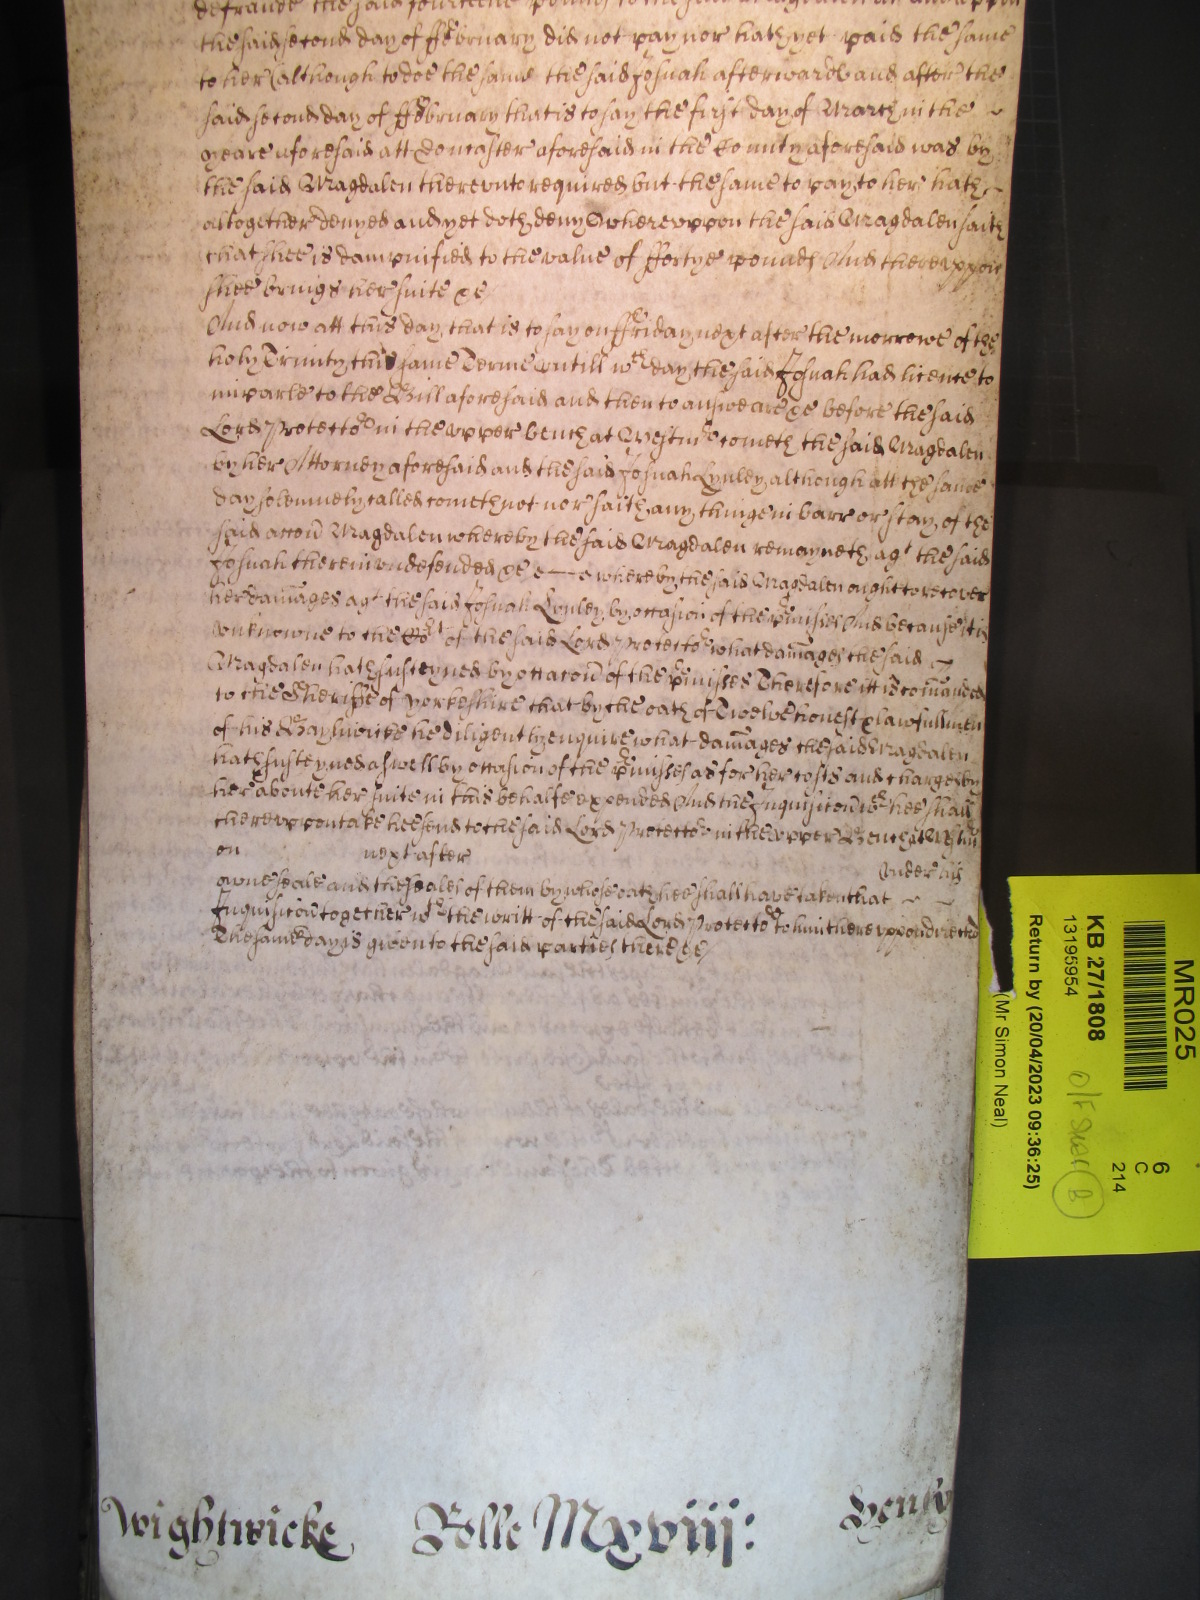 defraude the said fourteene pounds to the said Magdalen att and uppon
the said second day of ffebruary did not pay nor hath yet paid the same
to her (although to doe the same the said Josuah afterwards and after the
said second day of ffebruary that is to say the first day of March in the
yeare aforesaid att Doncaster aforesaid in the County aforesaid was by
the said Magdalen thereunto required but the same to pay to her hath
altogether denyed and yet doth deny Whereuppon the said Magdalen saith
that shee is dampnified to the value of ffortye pounds And thereuppon
shee brings her suite &c
And now att this day that is to say on ffriday next after the morrowe of the
holy Trinity this same Terme untill wch day the said Josuah had licence to
imparle to the Bill aforesaid and then to answeare &c before the said
Lord Protector in the upper bench at Westmr cometh the said Magdalen
by her Attorney aforesaid and the said Josuah Lynley although att the same
day solemnely called cometh not nor saith any thinge in barr or stay of the
said accon Magdalen whereby the said Magdalen remayneth agt the said
Josuah therein undefended &c whereby the said Magdalen ought to recover
her damages agt the said Josuah Lynley by occasion of the pmisses And because it is
unknowne to the Cort of the said Lord Protector what damages the said
Magdalen hath susteyned by occacon of the pmisses Therefore itt is comanded
to the Sheriffe of Yorkeshire that by the oath of Twelve honest & lawfull men
of his Baylywicke he diligently enquire what damages the said Magdalen
hath susteyned aswell by occasion of the pmisses as for her costs and charges by
her aboute her suite in this behalfe expended And the Inquisicon wch hee shall
thereuppon take hee send to the said Lord Protector in the upper Bench at Westmr
on next after under his
owne seale and the seales of them by whose oath hee shall have taken that
Inquisicon together wth the writt of the said Lord Protector to him thereuppon directed
The same day is given to the said parties there &c
Wightwicke Rolle Mxviij: Henly
MR025
KB 27/1808
13195954
Return by (20/04/2023 09:36:25)
(Mr Simon Neal)
6
C
214
B